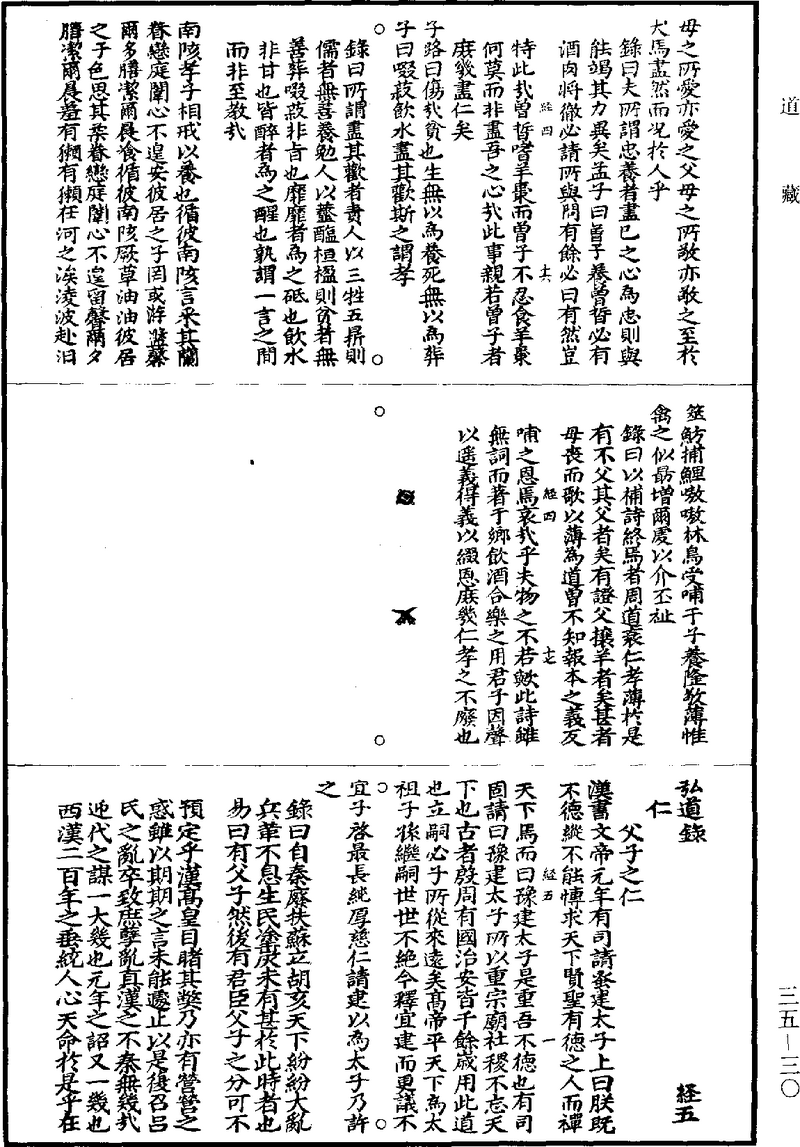 道藏
三五—三〇
母之所愛亦愛之父母之所敬亦敬之至於
犬馬盡然而况於人乎
錄曰夫所謂忠養者盡已之心為忠則與
能竭其力異矣孟子曰曾子養曾晳必有
酒肉將徹必請所與問有餘必曰有然豈
特此哉曾晳嗜羊棗而曾子不忍食羊棗
何莫而非盡吾之心哉此事親若曾子者
庶幾盡仁矣
子路曰傷哉貧也生無以為養死無以為葬
子曰啜菽飲水盡其歡斯之謂孝
錄曰所謂盡其歡者貴人以三牲五鼎則
儒者無善養勉人以虀醢桓楹則貧者無
善葬啜菽非旨也靡靡者為之砥也飲水
非甘也皆醉者為之醒也孰謂一言之間
而非至教哉
南陔孝子相戒以養也循彼南陔言采其蘭
眷戀庭闈心不遑安彼居之子罔或游盤馨
爾夕膳潔爾晨飧循彼南陔厥草油油彼居
之子色思其柔眷戀庭闈心不遑留馨爾夕
膳潔爾晨羞有獺有獺在河之涘淩波赴汨
經四
十六
筮魴捕鯉嗷嗷林烏受哺于子養隆敬薄惟
禽之似勗增爾虔以介丕祉
錄曰以補詩終焉者周道衰仁孝薄於是
有不父其父者矣有證父攘羊者矣甚者
母喪而歌以薄為道曾不知報本之義反
哺之恩焉哀哉乎夫物之不若歟此詩雖
無詞而著于鄉飲酒合樂之用君子因聲
以遥義得義以綴恩庶幾仁孝之不廢也
經四
十七
弘道錄
經五
仁
父子之仁
漢書文帝元年有司請蚤建太子上曰朕既
不德縱不能慱求天下賢聖有德之人而禪
天下焉而曰豫建太子是重吾不德也有司
固請曰豫建太子所以重宗廟社稷不忘天
下也古者殷周有國治安皆千餘歲用此道
也立嗣必子所從來遠矣高帝平天下為太
祖子孫繼嗣世世不絕今釋宜建而更議不
宜子啓最長純厚慈仁請建以為太子乃許
之
錄曰自秦廢扶蘇立胡亥天下紛紛大亂
兵革不息生民塗炭未有甚於此時者也
易曰有父子然後有君臣父子之分可不
預定乎漢高皇目睹其獘乃亦有營營之
惑雖以期期之言未能遽止以是後召呂
氏之亂卒致庶孽亂真漢之不秦無幾哉
迎代之謀一大幾也元年之詔又一幾也
西漢二百年之垂統人心天命於是乎在
經五
一